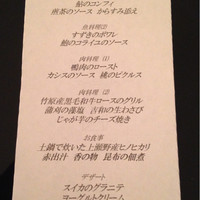 鮎のコンフィ
煎茶のソース からすみ添え
魚料理②
すずきのポワレ
蛤のコライユのソース
肉料理 ①
鴨肉のロースト
カシスのソース 桃のピクルス
肉料理 ②
竹原産黒毛和牛ロースのグリル
蒲刈の藻塩 吉和の生わさび
じゃが芋のチーズ焼き
お食事
土鍋で炊いた上瀬野産ヒノヒカリ
赤出汁 香の物 昆布の佃煮
デザート
スイカのグラニテ
ヨーグルトクリーム